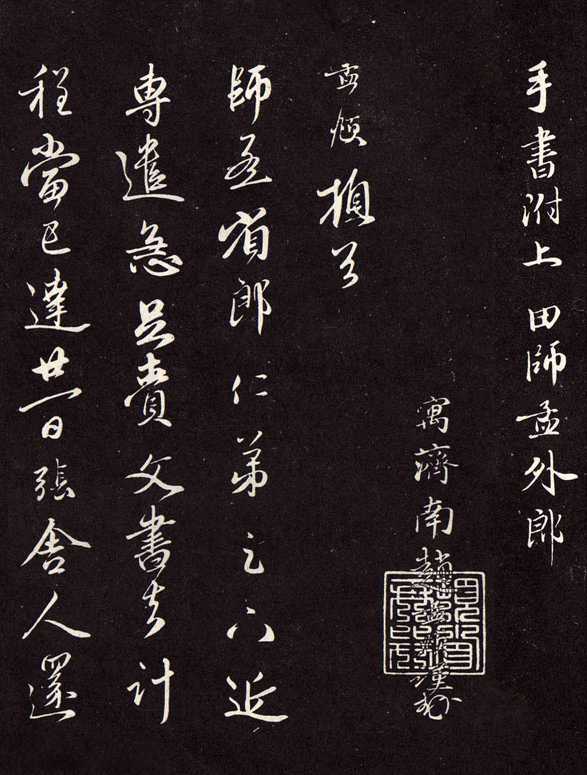 手書附上 田師孟外郎
寓濟南趙孟頫謹封
孟頫頓首
師孟省郎仁弟足下近
專遣急足賫文書去計
程當已達廿一日張舍人還